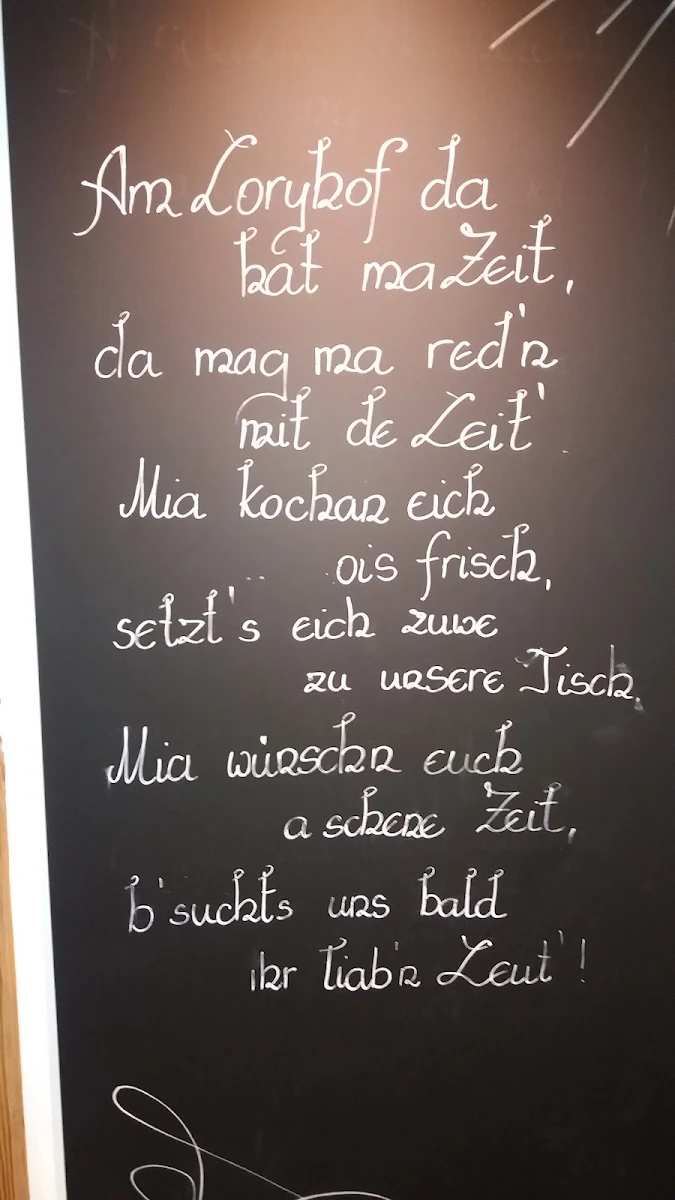 Am Loryhof da
hat ma Zeit,
da mag ma red'n
mit de Leit'
Mia kochan eich
ois frisch,
setzt's eich zuwe
zu unsere Tisch.
Mia wünschn euch
a schene Zeit,
b'suchts uns bald
ihr liab'n Leut'!